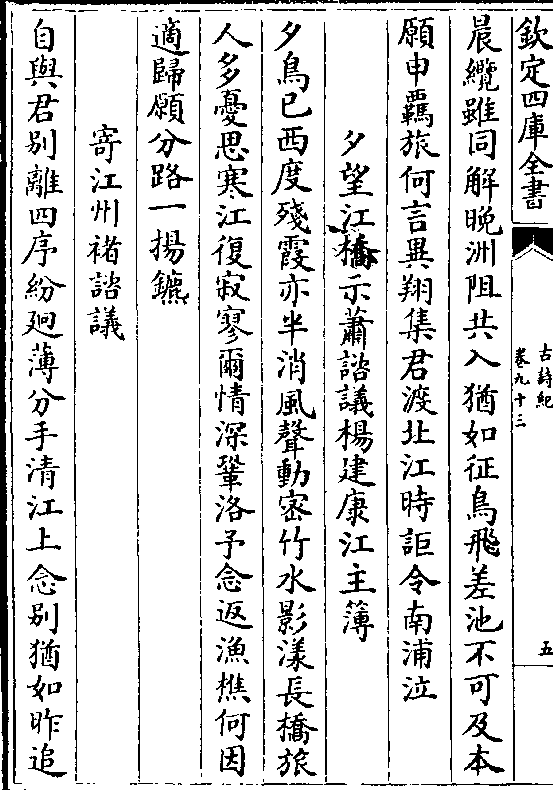 欽定四庫全書
古詩紀
卷九十三
五
晨纜雖同解晚洲阻共入猶如征鳥飛差池不可及本
願申羈旅何言異翔集君渡北江時詎令南浦泣
夕望江橋示蕭諮議楊建康江主簿
夕鳥已西度殘霞亦半消風聲動密竹水影漾長橋旅
人多憂思寒江復寂寥爾情深鞏洛予念返漁樵何因
適歸願分路一揚鑣
寄江州褚諮議
自與君別離四序紛廻薄分手清江上念別猶如昨追